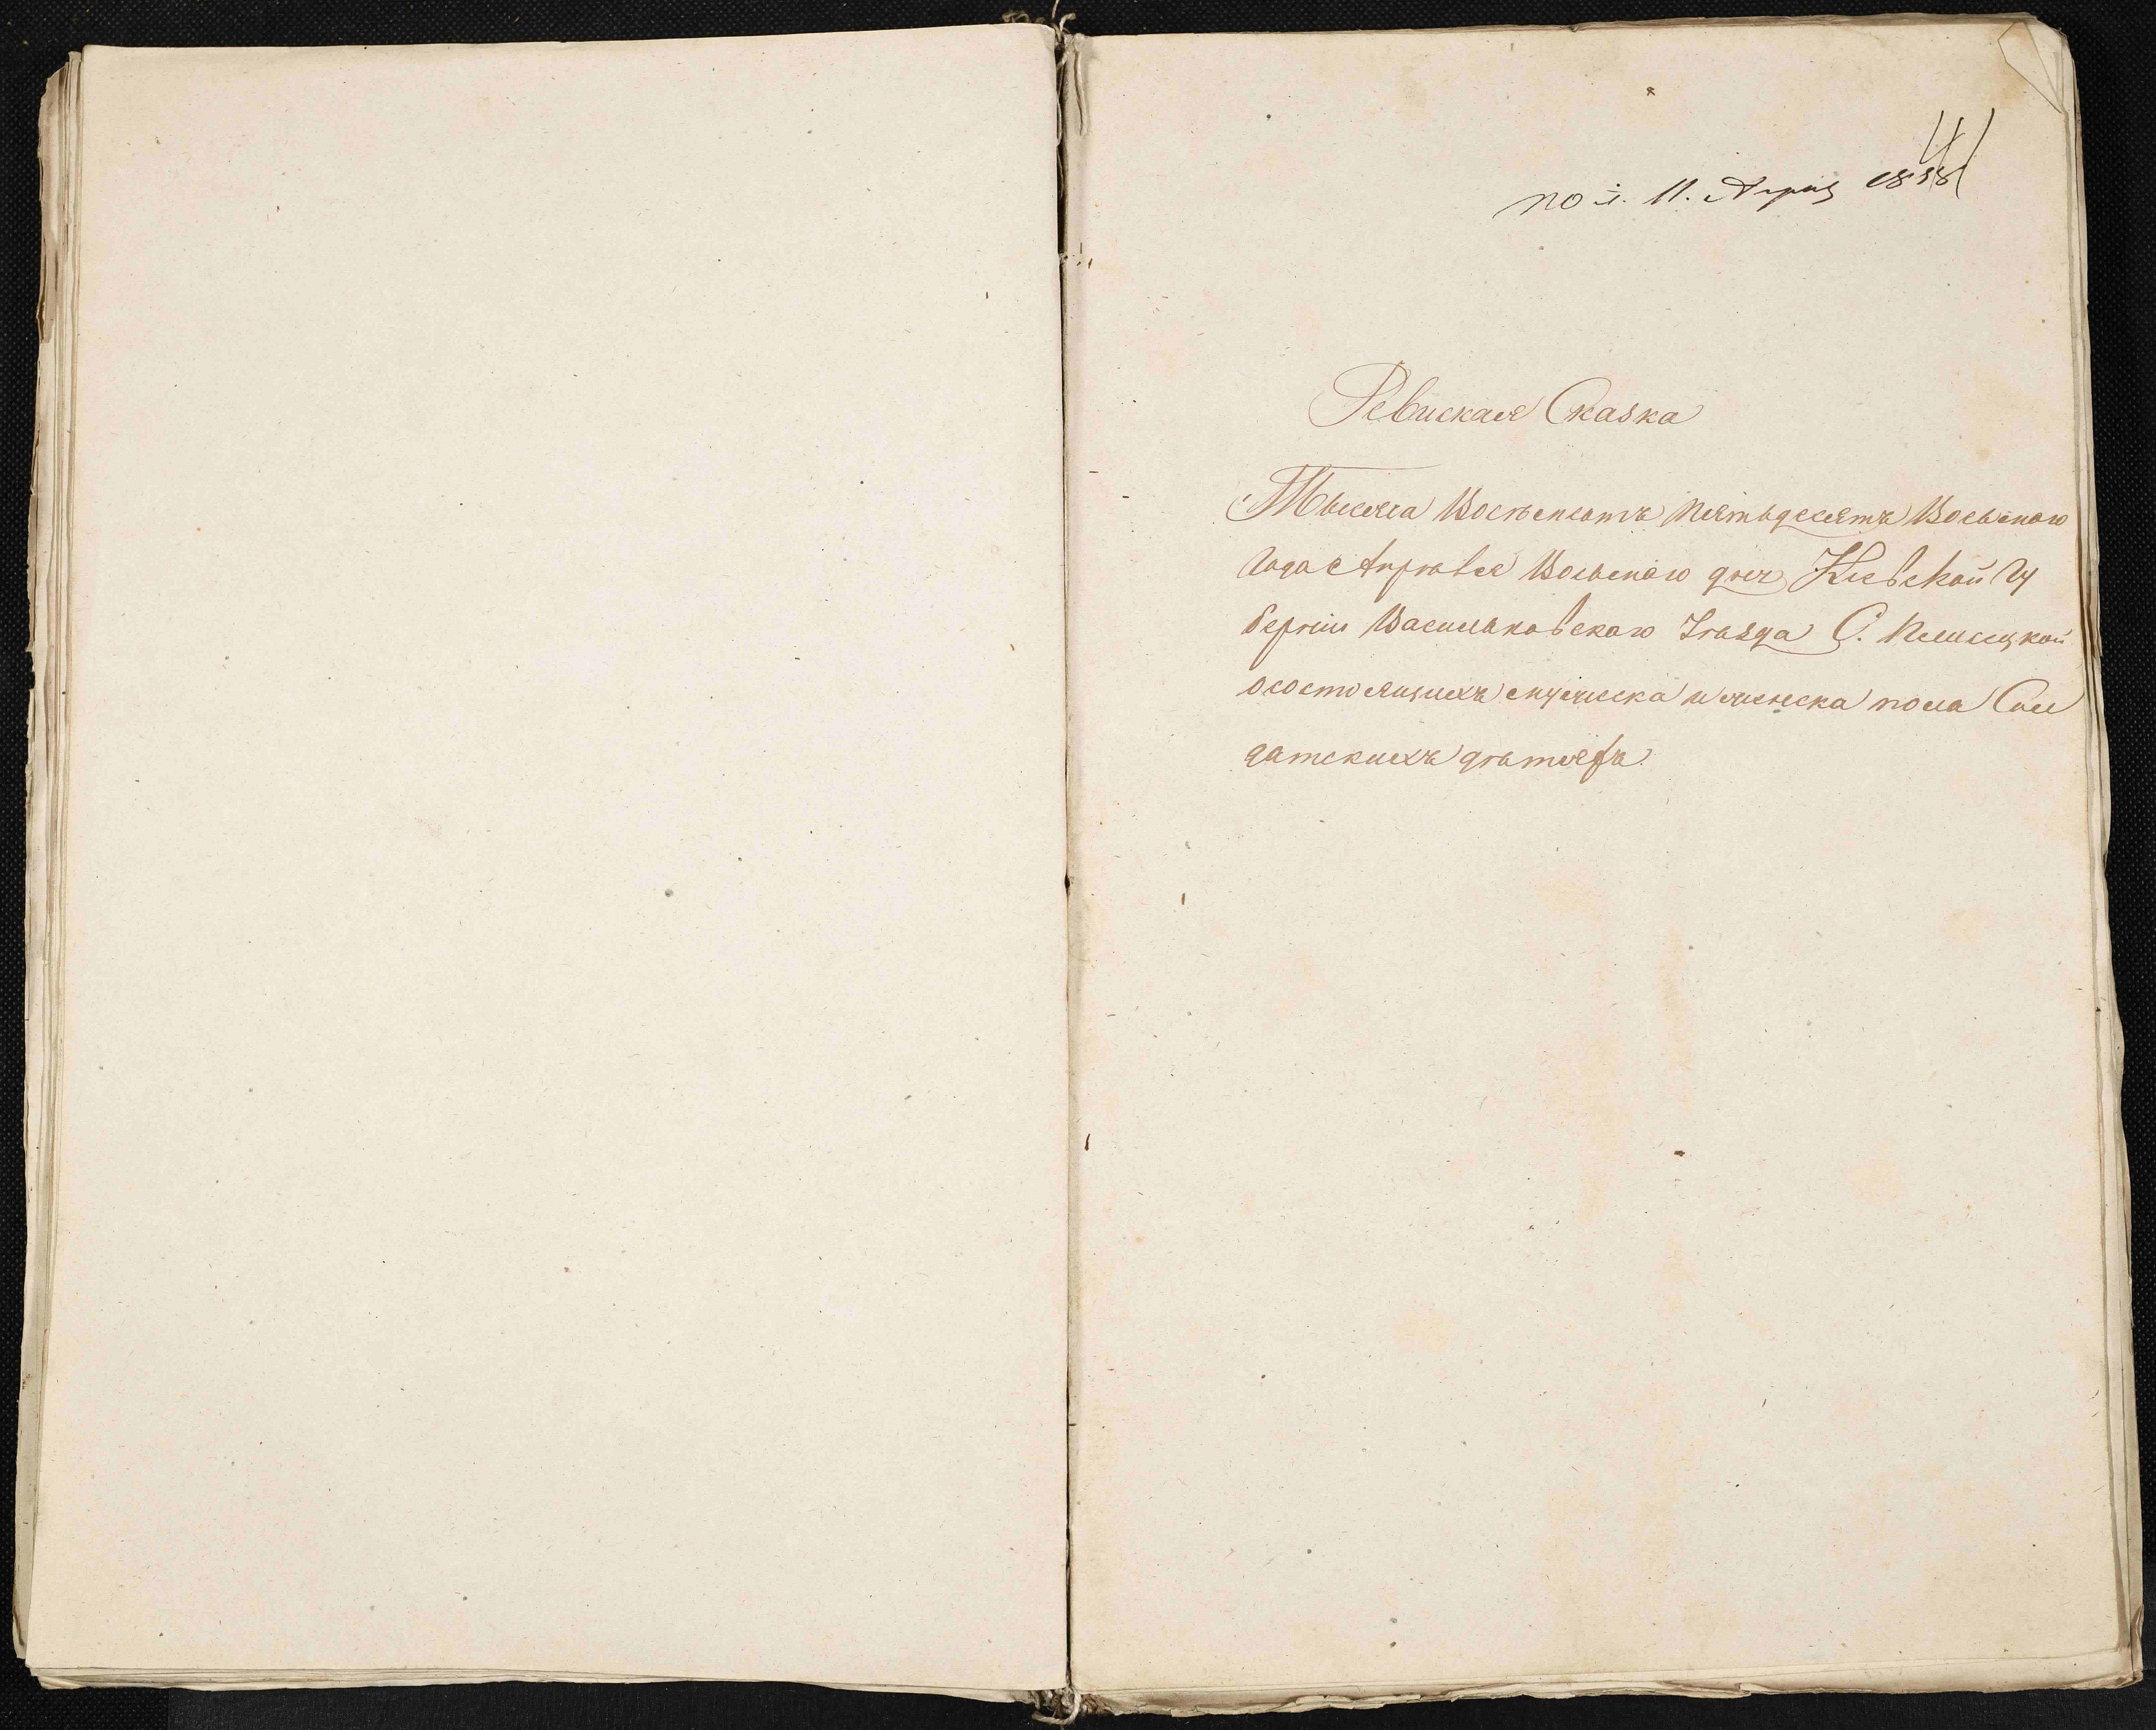 пол. 11. Апреля 1858
Ревиская Сказка
Тысяча Восѣемсотъ Пятьдесятъ Восьмого
Года Апрѣля Восьмого дня Кіевской Гу
берніи Васильковскаго Уѣзда С.
осостоящихъ мужеска и женска пола Сол
датскихъ дѣтяхъ